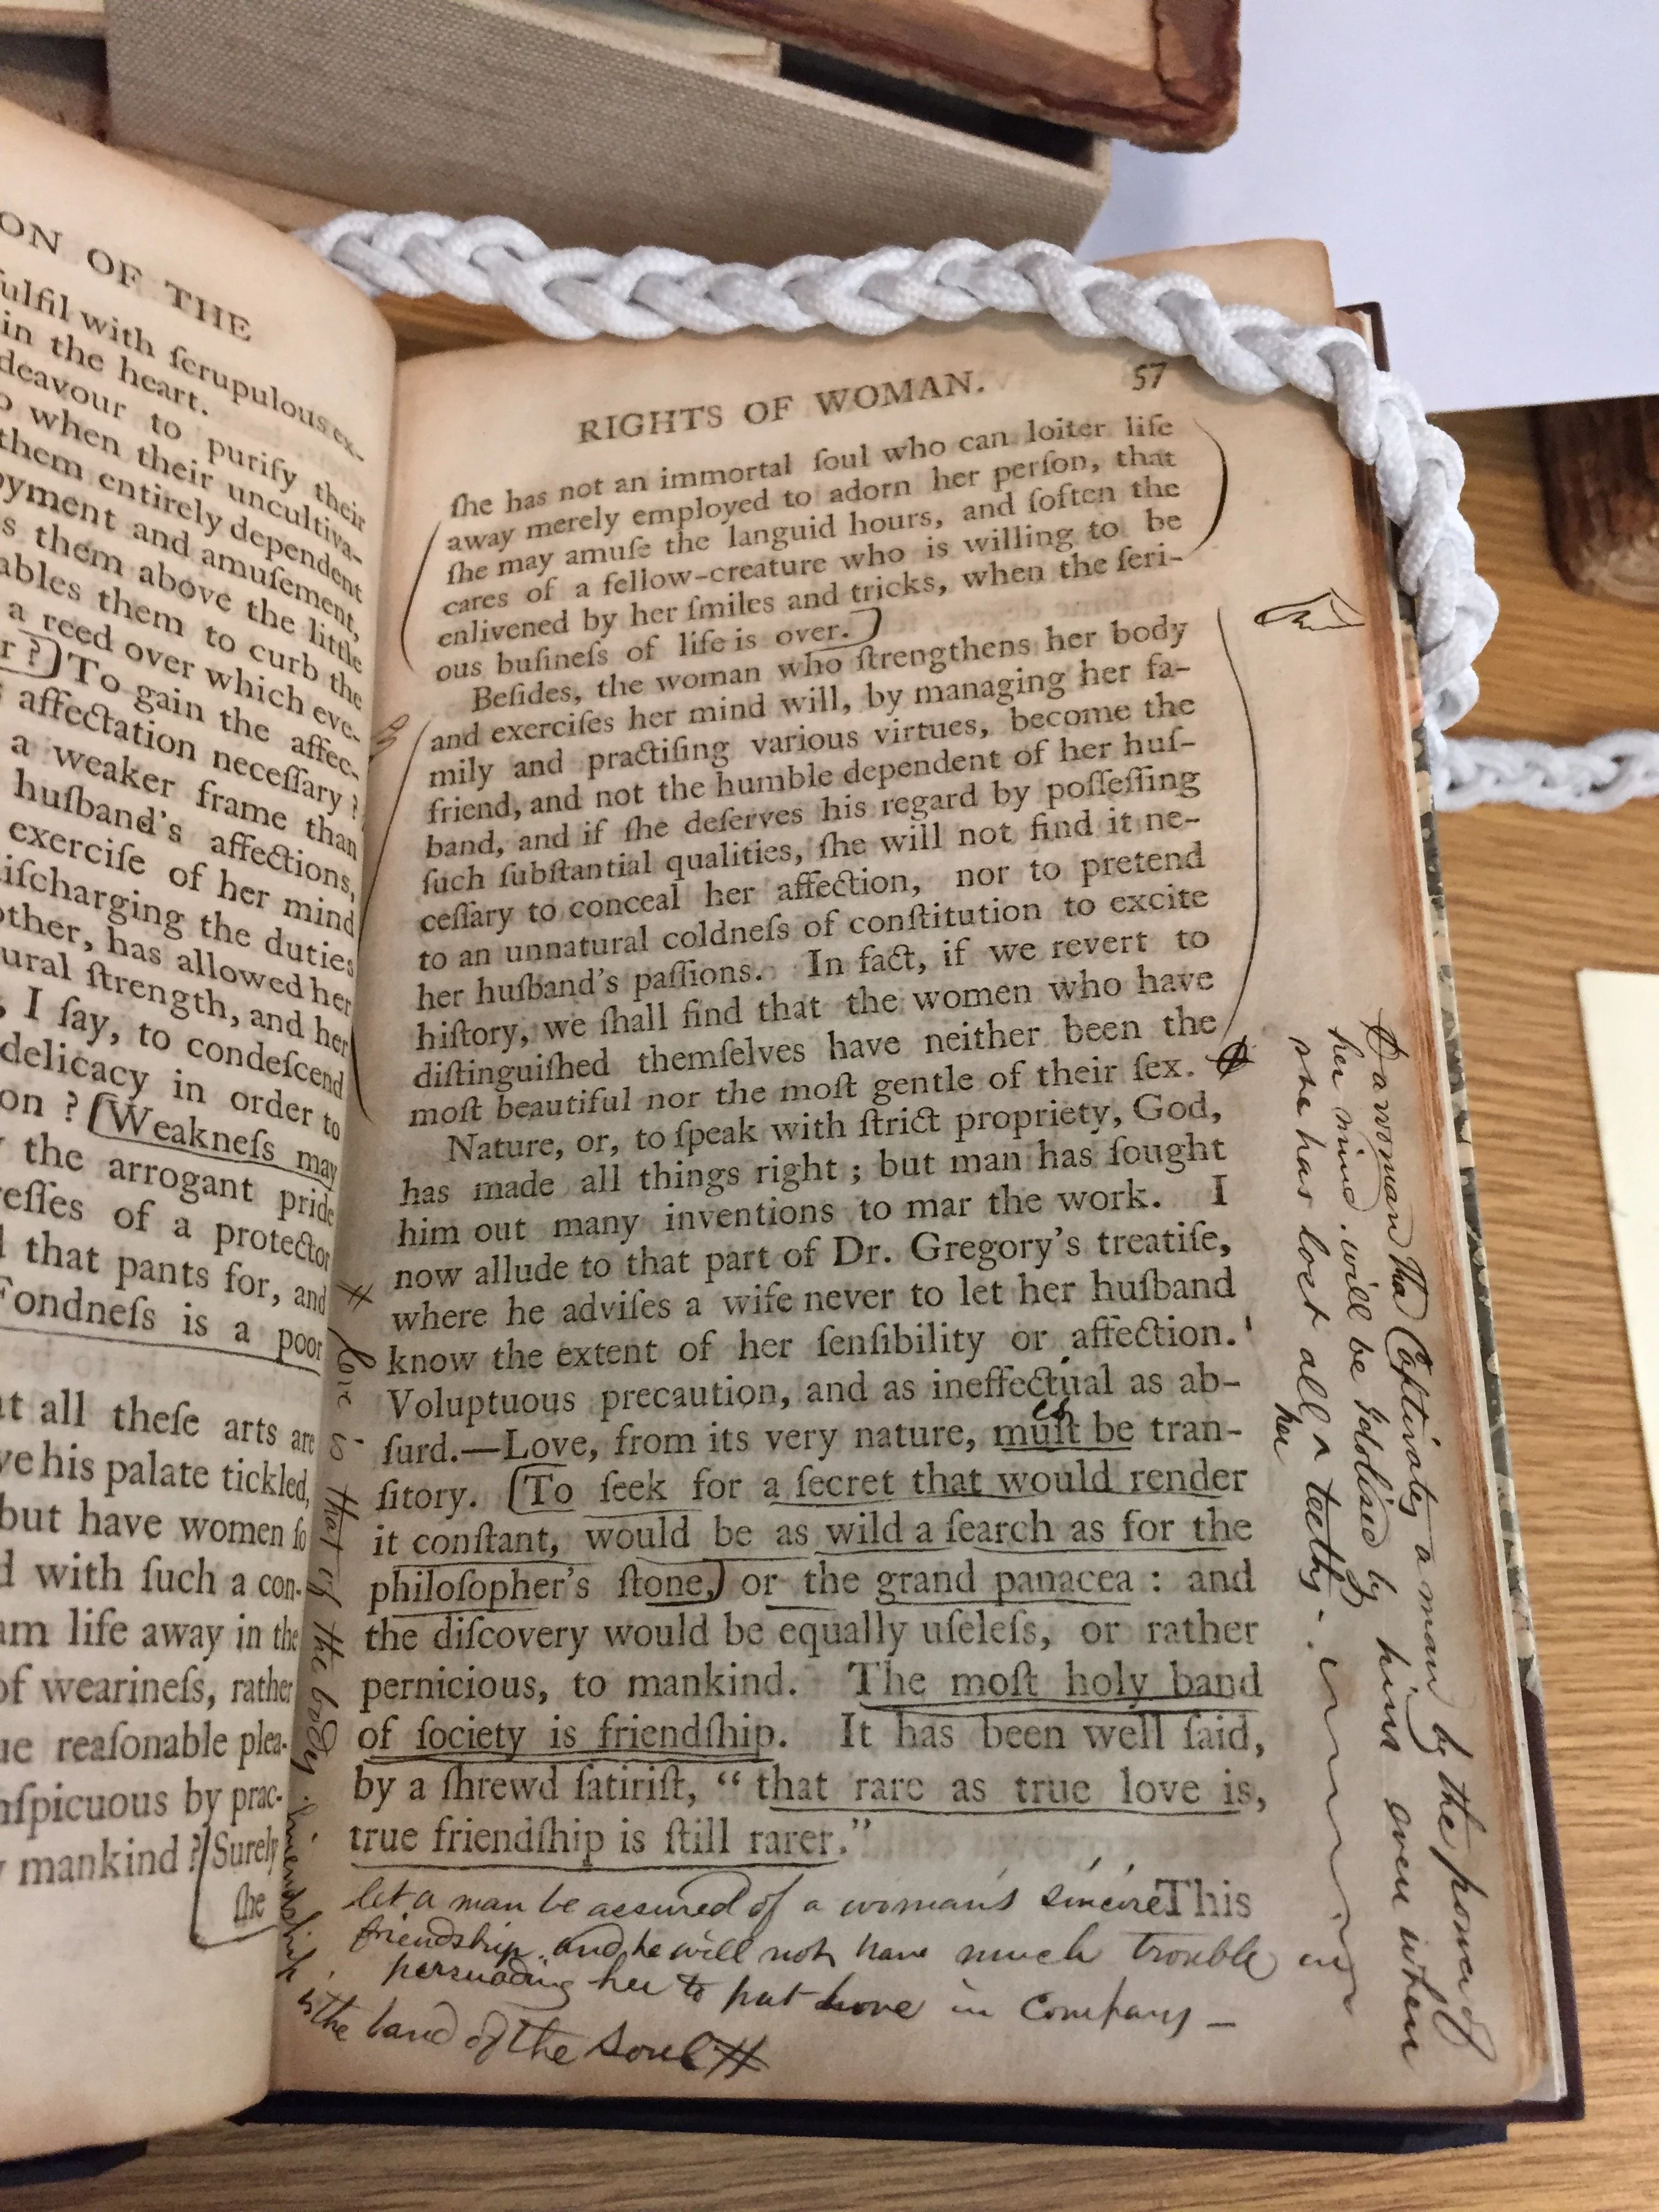 ON OF THE
ulfil with ſcrupulous ex-
in the heart.
deavour to purify their
o when their uncultiva-
them entirely dependent
oyment and amuſement,
s them above the little
ables them to curb the
a reed over which eve-
r? To gain the affec-
affectation neceſſary?
a weaker frame than
huſband's affections,
exerciſe of her mind
iſcharging the duties
other, has allowed her
ural ſtrength, and her
, I ſay, to condeſcend
delicacy in order to
on? Weakneſs may
the arrogant pride
reſſes of a protector
that pants for, and
Fondneſs is a poor
at all theſe arts are
ve his palate tickled,
but have women ſo
d with ſuch a con-
am life away in the
of wearineſs, rather
ue reaſonable plea-
nſpicuous by prac-
mankind? Surely
ſhe
RIGHTS OF WOMAN. 57
ſhe has not an immortal ſoul who can loiter life
away merely employed to adorn her perſon, that
ſhe may amuſe the languid hours, and ſoften the
cares of a fellow-creature who is willing to be
enlivened by her ſmiles and tricks, when the ſeri-
ous buſineſs of life is over.
Beſides, the woman who ſtrengthens her body
and exerciſes her mind will, by managing her fa-
mily and practiſing various virtues, become the
friend, and not the humble dependent of her huſ-
band, and if ſhe deſerves his regard by poſſeſſing
ſuch ſubſtantial qualities, ſhe will not find it ne-
ceſſary to conceal her affection, nor to pretend
to an unnatural coldneſs of conſtitution to excite
her huſband's paſſions. In fact, if we revert to
hiſtory, we ſhall find that the women who have
diſtinguiſhed themſelves have neither been the
moſt beautiful nor the moſt gentle of their ſex.
Nature, or, to ſpeak with ſtrict propriety, God,
has made all things right; but man has ſought
him out many inventions to mar the work. I
now allude to that part of Dr. Gregory's treatiſe,
where he adviſes a wife never to let her huſband
know the extent of her ſenſibility or affection.
Voluptuous precaution, and as ineffectual as ab-
ſurd.—Love, from its very nature, muſt be tran-
ſitory. To ſeek for a ſecret that would render
it conſtant, would be as wild a ſearch as for the
philoſopher's ſtone, or the grand panacea: and
the diſcovery would be equally uſeleſs, or rather
pernicious, to mankind. The moſt holy band
of ſociety is friendſhip. It has been well ſaid,
by a ſhrewd ſatiriſt, “that rare as true love is,
true friendſhip is ſtill rarer.”
This
let a man be assured of a woman's sincere
friendship, and he will not have much trouble in
persuading her to put love in company —
# love is that of the body. friendship
is the band of the soul #
a woman tha Captivates a man by the power of
her mind. will be Idolised by him even when
she has lost all her teeth.